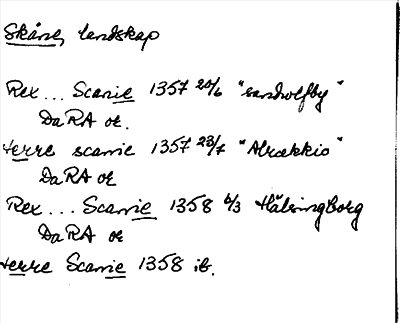 Skåne, landskap
Rex... Scanie 1357 20/6 "sandwlfby"
DaRA or.
terre scanie 1357 23/7 "Alrækkio"
DaRA or
Rex... Scanie 1358 6/3 Hälsingborg
DaRA or
terre Scanie 1358 ib.